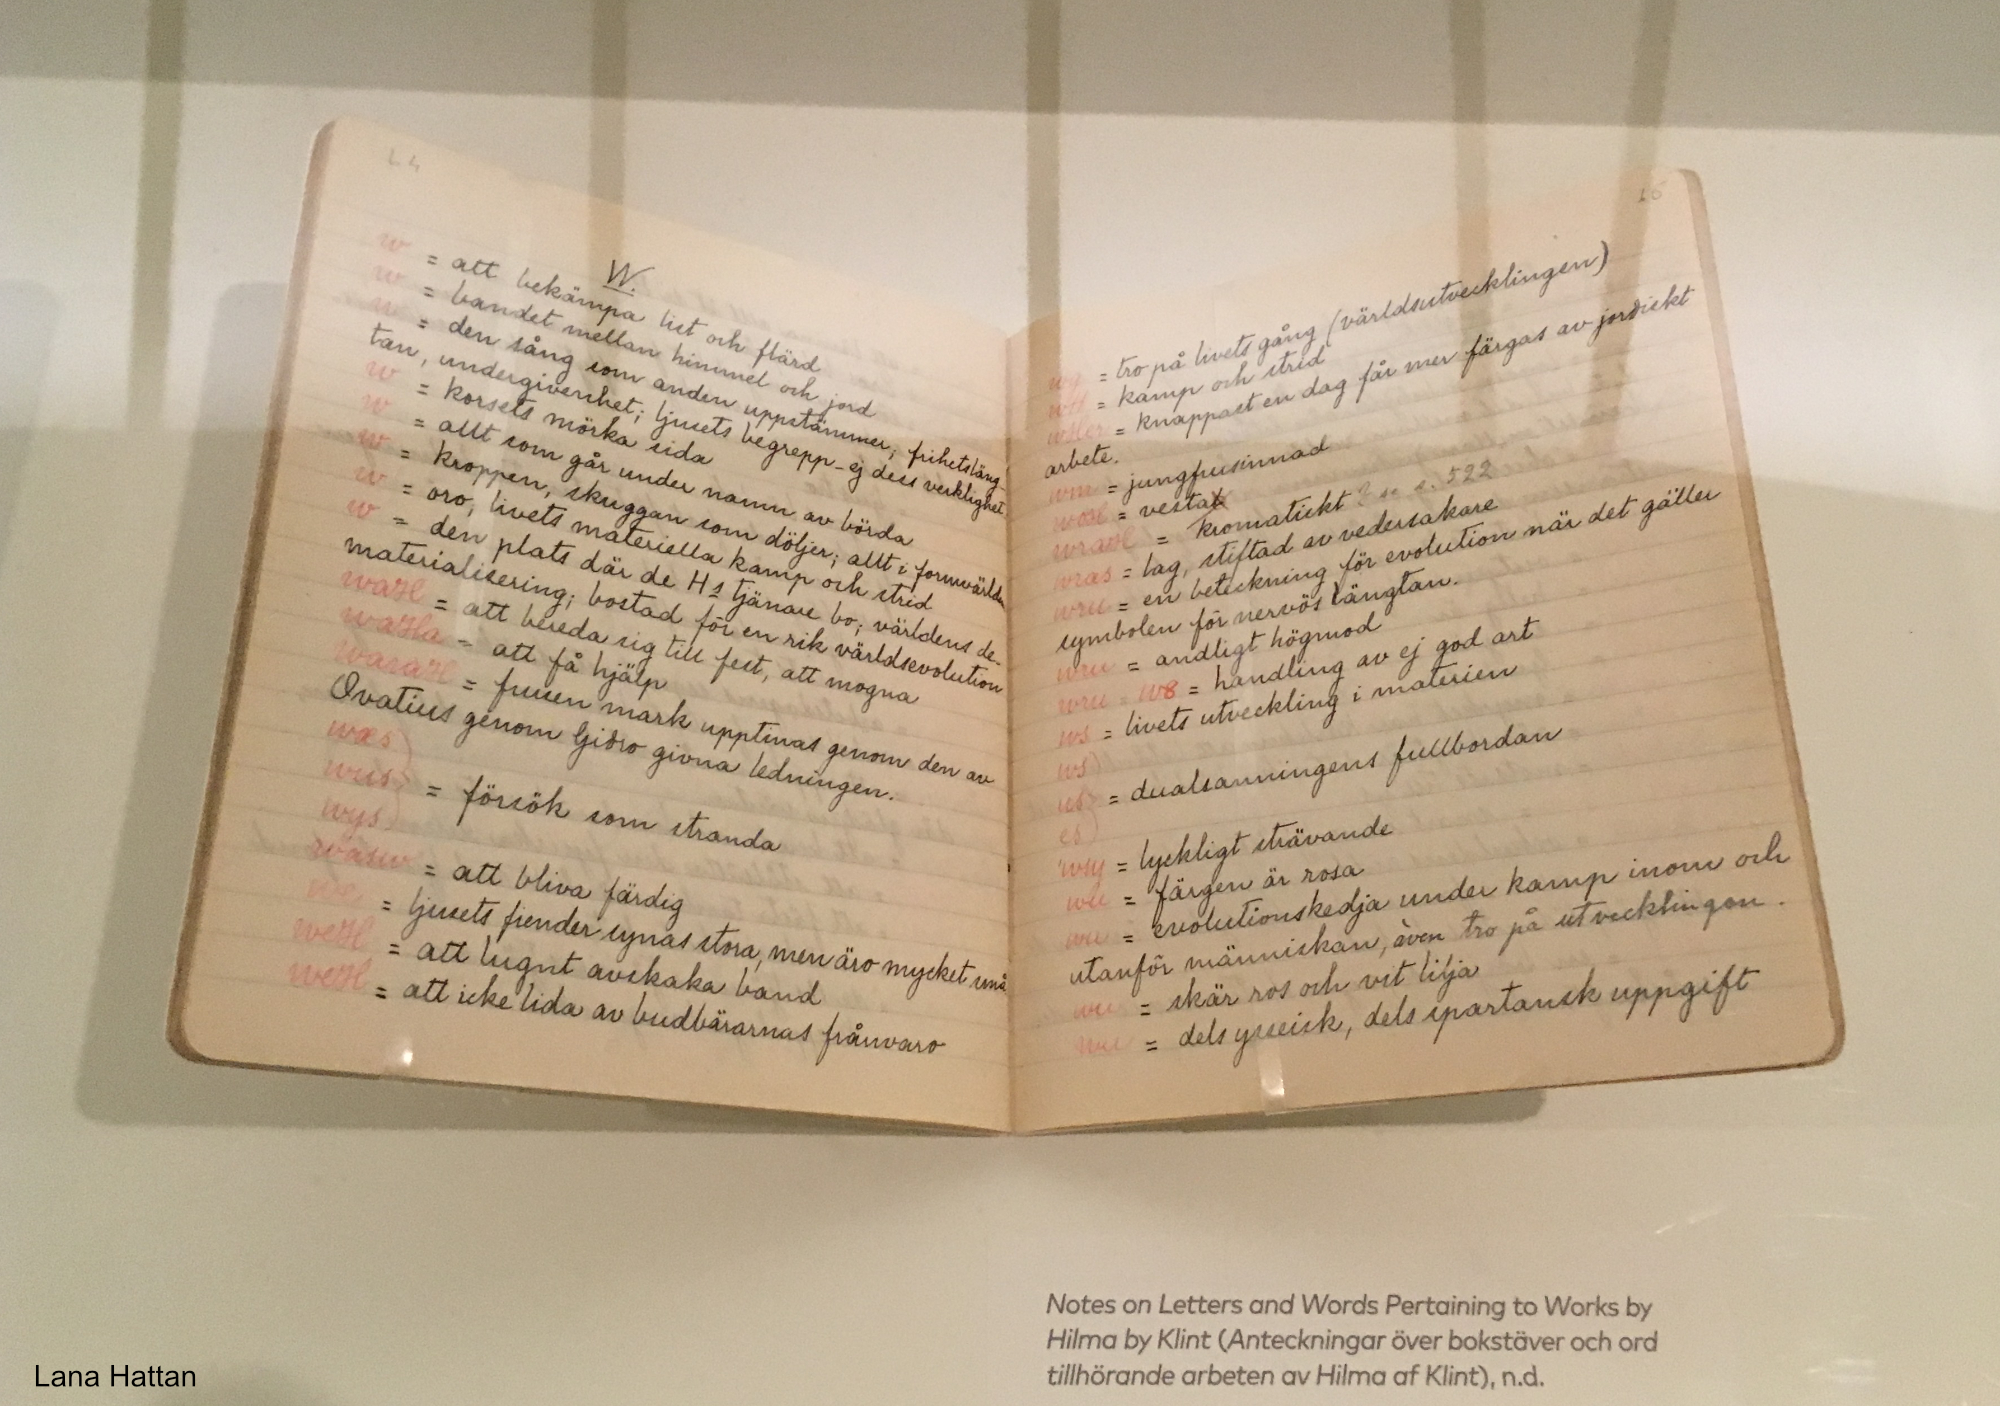 W.
w = att bekämpa list och flärd
w = bandet mellan himmel och jord
w = den sång som anden uppstämmer; frihetsläng-
tan, undergivenhet; ljusets begrepp - ej dess verklighet.
w = korsets mörka sida
w = allt som går under namn av börda
w = kroppen, skuggan som döljer; allt i formvärlden
w = oro, livets materiella kamp och strid
w = den plats där de H s tjänare bo; världens de-
materialisering; bostad för en rik världsevolution
= att bereda sig till fest, att mogna
= att få hjälp
= frusen mark upptinas genom den av
Ovatius genom Gidro givna ledningen.
wæs)
wus) = försök som stranda
wys)
= att bliva färdig
we = ljusets fiender synas stora, men äro mycket små
= att lugnt avskaka band
= att icke lida av budbärarnas frånvaro
= tro på livets gång (världsutvecklingen)
= kamp och strid
= knappast en dag får mer färgas av jordiskt
arbete.
wm = jungfrusinnad
= vestal
= kromatiskt ? se s. 522
wræs = lag, stiftad av vedersakare
wru = en beteckning för evolution när det gäller
symbolen för nervös längtan.
wru = andligt högmod
wru - = handling av ej god art
ws = livets utveckling i materien
ws)
us) = dualsanningens fullbordan
es)
= lyckligt strävande
wu = färgen är rosa
wu = evolutionskedja under kamp inom och
utanför människan, även tro på utvecklingen.
wu = skär ros och vit lilja
wu = dels ysseisk, dels spartansk uppgift
Notes on Letters and Words Pertaining to Works by
Hilma by Klint (Anteckningar över bokstäver och ord
tillhörande arbeten av Hilma af Klint), n.d.
Lana Hattan